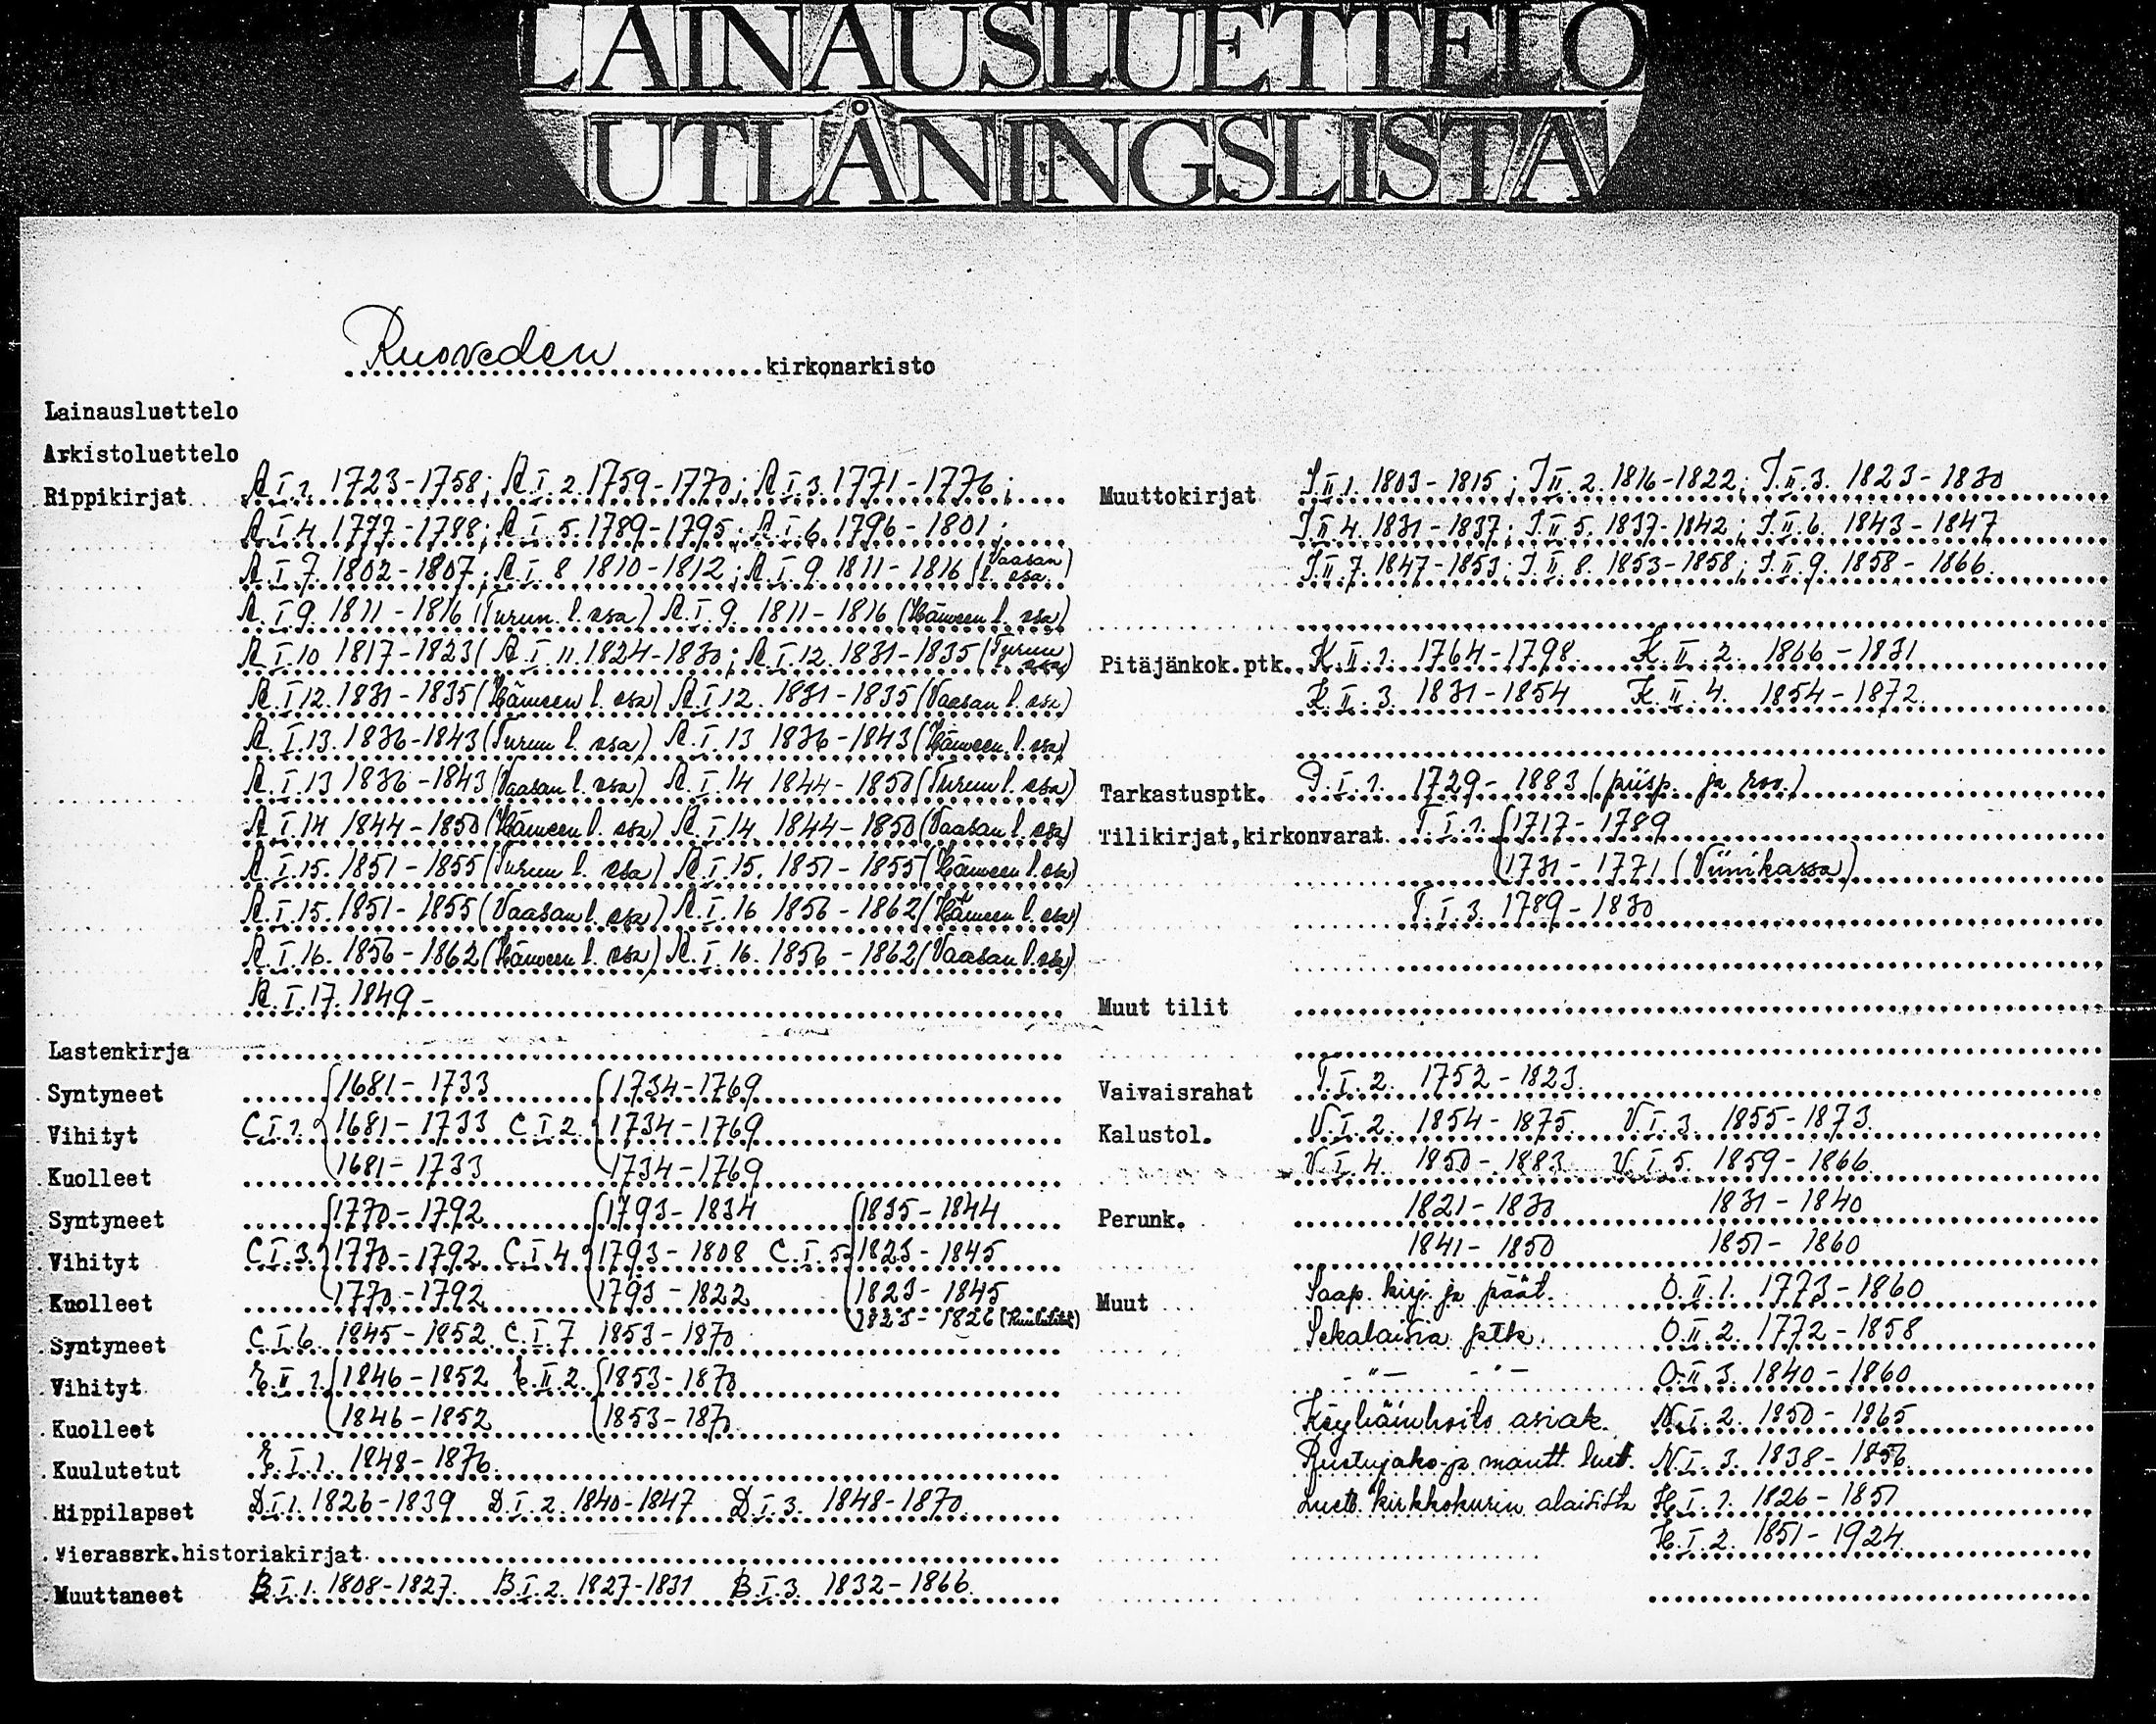 LAINAUSLUETTELO
UTLÅNINGSLISTA
Ruoveden kirkonarkisto
Lainausluettelo
Arkistoluettelo
Rippikirjat A.I.1. 1723-1758; A.I.2. 1759-1770; A.I.3. 1771-1776;
A.I.4. 1777-1788; A.I.5. 1789-1795; A.I.6. 1796-1801;
A.I.7. 1802-1807; A.I.8 1810-1812; A.I.9. 1811-1816 (Vaasan l. osa)
A.I.9. 1811-1816 (Turun l. osa) A.I.9. 1811-1816 (Hämeen l. osa)
A.I.10 1817-1823( A.I.11. 1824-1830; A.I.12. 1831-1835 (Turun l. osa)
A.I.12. 1831-1835 (Hämeen l. osa) A.I.12. 1831-1835 (Vaasan l. osa)
A.I.13. 1836-1843 (Turun l. osa) A.I.13 1836-1843 (Hämeen l. osa)
A.I.13 1836-1843 (Vaasan l. osa) A.I.14 1844-1850 (Turun l. osa)
A.I.14 1844-1850 (Hämeen l. osa) A.I.14. 1844-1850 (Vaasan l. osa)
A.I.15. 1851-1855 (Turun l. osa) A.I.15. 1851-1855 (Hämeen l. osa)
A.I.15. 1851-1855 (Vaasan l. osa) A.I.16 1856-1862 (Hämeen l. osa)
A.I.16. 1856-1862 (Hämeen l. osa) A.I.16. 1856-1862 (Vaasan l. osa)
A.I.17. 1849-
Lastenkirja
Syntyneet 1681-1733 1734-1769
Vihityt C.I.1. 1681-1733 C.I.2. 1734-1769
Kuolleet 1681-1733 1734-1769
Syntyneet 1770-1792 1793-1834 1835-1844
Vihityt C.I.3. 1770-1792 C.I.4 1793-1808 C.I.5 1823-1845
Kuolleet 1770-1792 1793-1822 1823-1845
1823-1826
Syntyneet C.I.6. 1845-1852 C.I.7 1853-1870
Vihityt E.II.1. 1846-1852 E.II.2. 1853-1870
Kuolleet 1846-1852 1853-187
Kuulutetut E.I.1. 1848-1876.
Rippilapset D.I.1. 1826-1839 D.I.2. 1840-1847 D.I.3. 1848-1870.
Vierassrk.historiakirjat
Muuttaneet B.I.1. 1808-1827. B.I.2. 1827-1831 B.I.3. 1832-1866.
Muuttokirjat J.II.1. 1803-1815; J.II.2. 1816-1822; J.II.3. 1823-1830
J.II.4. 1831-1837; J.II.5. 1837-1842; J.II.6. 1843-1847
J.II.7. 1847-1853; J.II.8. 1853-1858; J.II.9. 1858-1866.
Pitäjänkok.ptk. K.II.1. 1764-1798. K.II.2. 1866-1831
K.II.3. 1831-1854 K.II.4. 1854-1872.
Tarkastusptk. P.I.1. 1729-1883 (piisp. ja rov.)
Tilikirjat,kirkonvarat T.I.1. 1717-1789
1731-1771 (Viinikassa)
T.I.3. 1789-1830
Muut tilit
Vaivaisrahat T.I.2. 1752-1823.
Kalustol. V.I.2. 1854-1875. V.I.3. 1855-1873.
V.I.4. 1850-1883 V.I.5. 1859-1866.
Perunk. 1821-1830 1831-1840
1841-1850 1851-1860
Muut Saap. kirj. ja päät. O.II.1. 1773-1860
Sekalaisia ptk. O.II.2. 1772-1858
-"- -"- O.II.3. 1840-1860
Köyhäinhoito asiak. N.I.2. 1850-1865
Ruotujako-ja mantt. luet. N.I.3. 1838-1856.
Luett. kirkkokurin alaisista H.I.1. 1826-1851
H.I.2. 1851-1924.